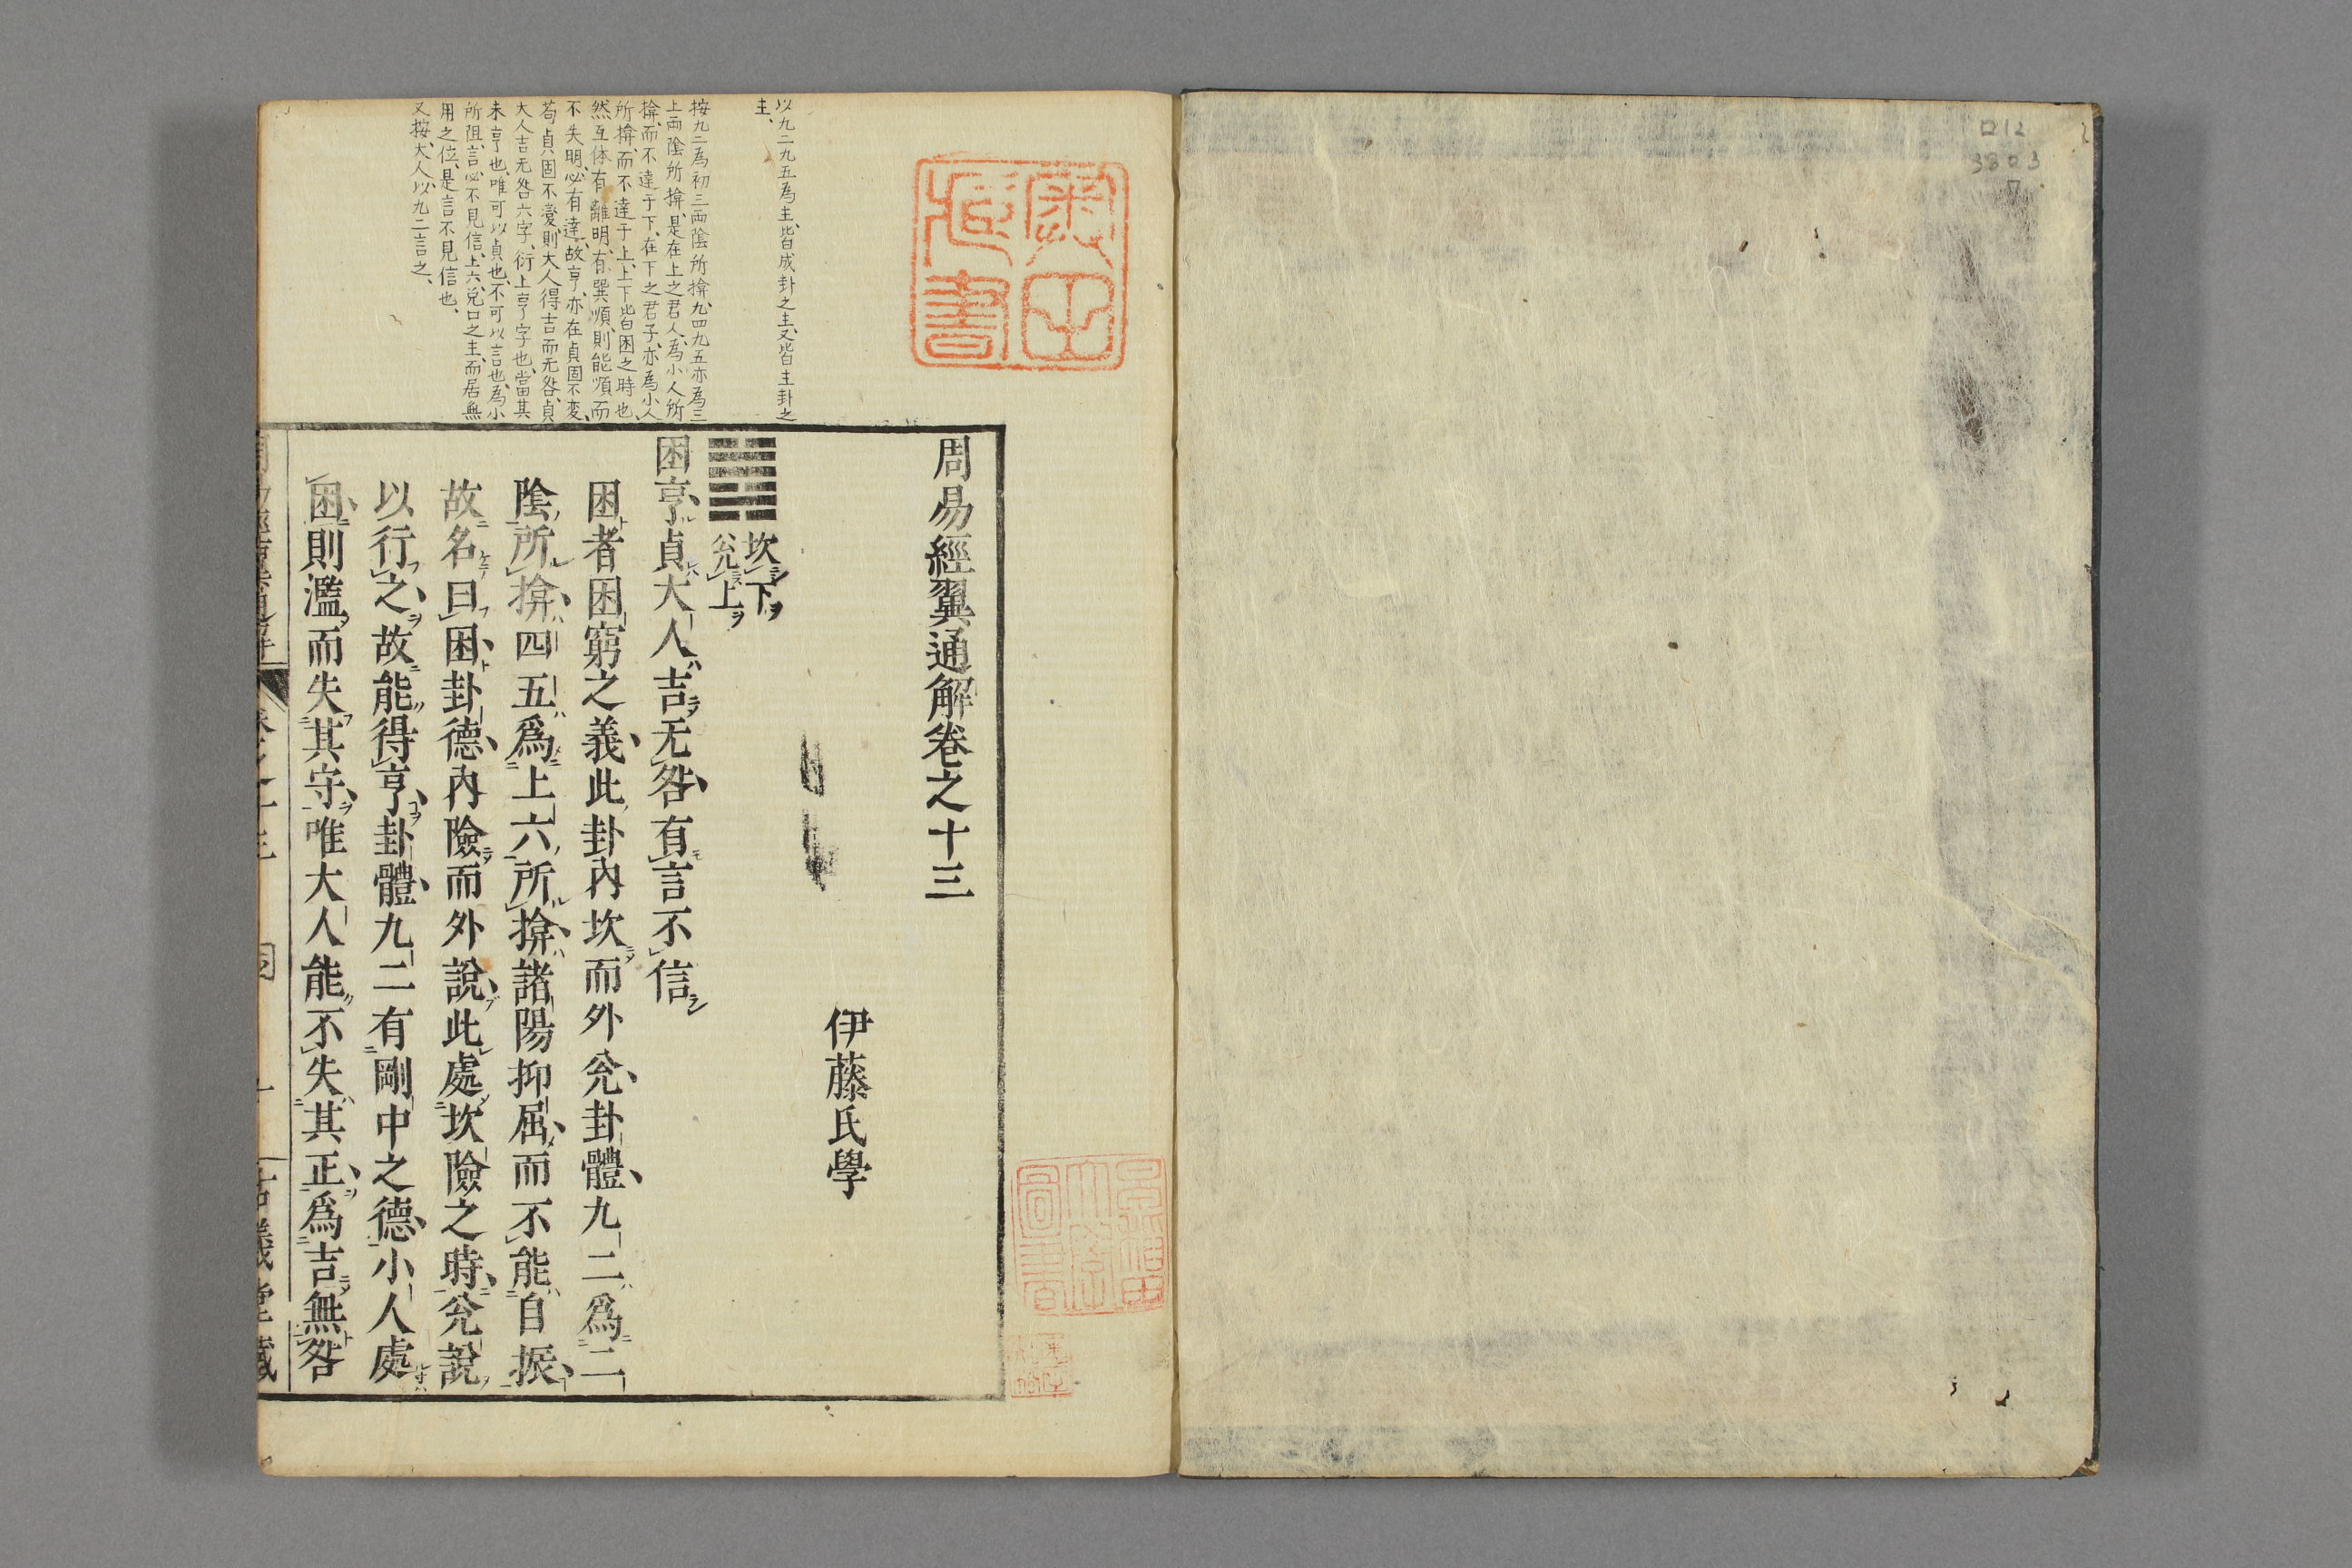 周易經翼通解卷之十三
伊藤氏學
坎下
兌上
困亨貞大人吉无咎有言不信
困者困窮之義此卦內坎而外兌卦體九二爲二
陰所揜四五爲上六所揜諸陽抑屈而不能自振
故名曰困卦德內險而外說此處坎險之時兌說
以行之故能得亨卦體九二有剛中之德小人處
困則濫而失其守唯大人能不失其正爲吉無咎
以九二九五為主、皆成卦之主、又皆主卦之
主、
按九二為初三両陰所揜、九四九五亦為三
上両陰所揜、是在上之君人、為小人所
揜、而不達于下、在下之君子、亦為小人
所揜、而不達于上、上下皆困之時也
然互体有離明、有巽順、則能順而
不失明、必有達、故亨、亦在貞固不変、
苟貞固不変、則大人得吉而无咎、貞
大人吉无咎六字、衍上亨字也、當其
未亨也、唯可以貞也、不可以言也、為小
所阻、言必不見信、上六、兌口之主、而居無
用之位、是言不見信也、
又按、大人、以九二言之、
古義堂藏
口12
3803
7